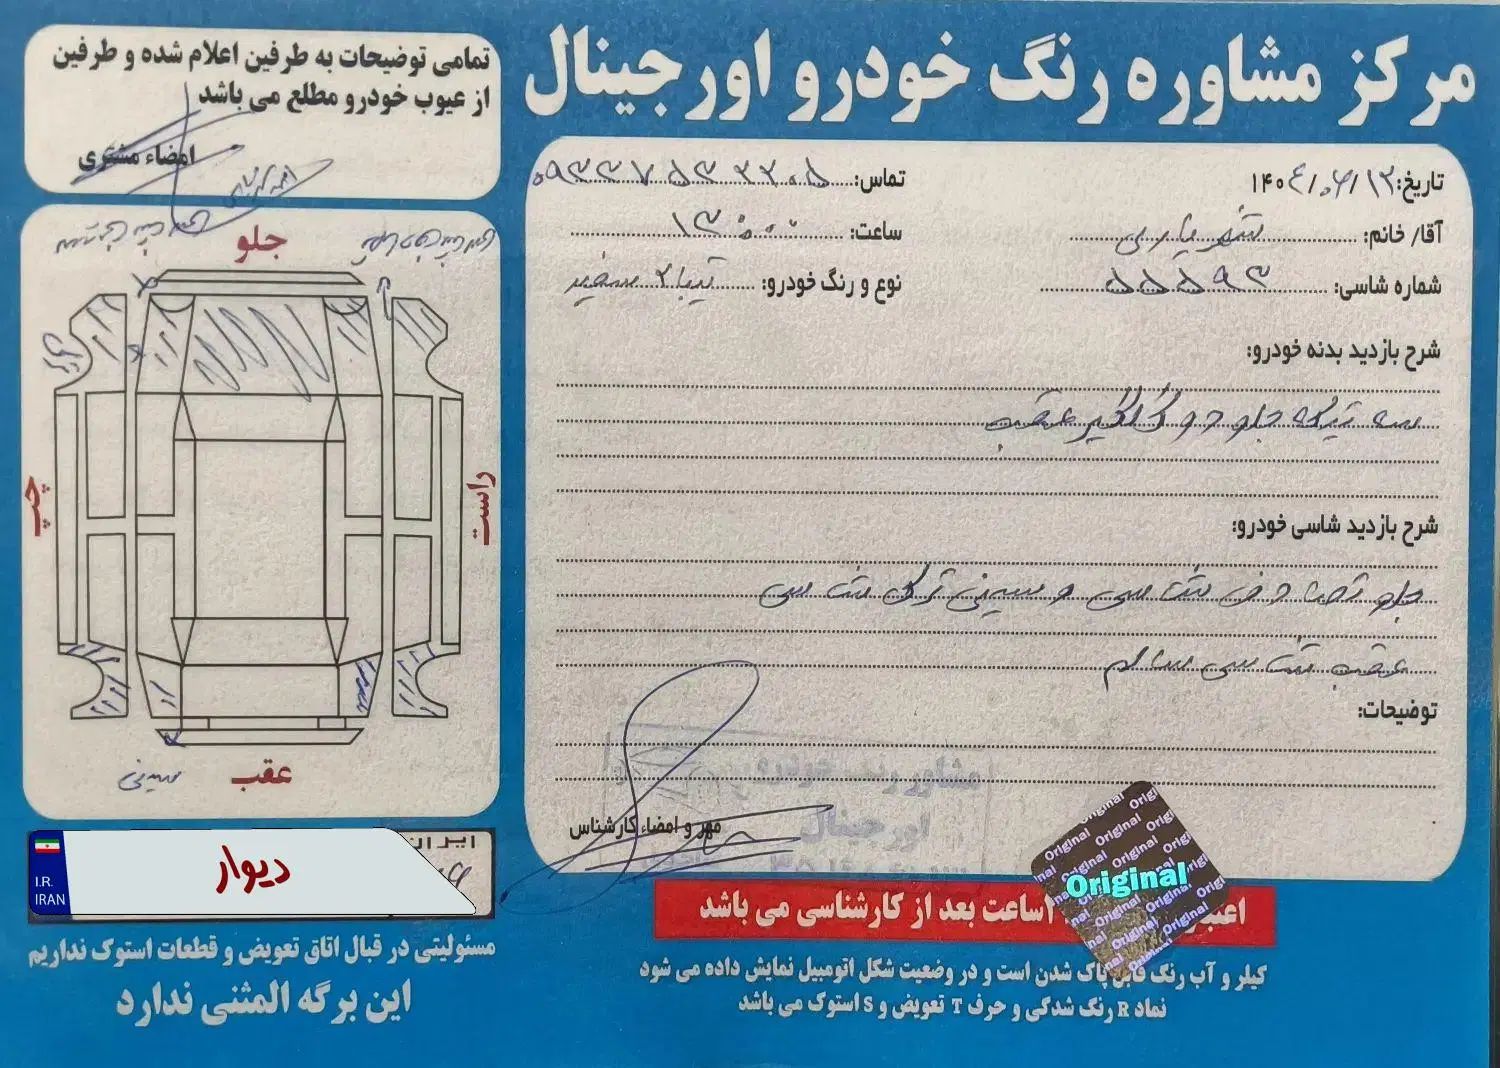 مرکز مشاوره رنگ خودرو اورجینال
تاریخ: ۱۴۰۴/۰۶/۱۲
تماس:
آقا/ خانم:
ساعت: ۱۳:۰۰
شماره شاسی: ۵۵۵۹۳
نوع و رنگ خودرو: تیبا ۲ سفید
شرح بازدید بدنه خودرو:
سه تیکه جلو دو گلگیر عقب
شرح بازدید شاسی خودرو:
جلو تصادف شاسی و سینی ترک شاسی
عقب شاسی سالم
توضیحات:
مهر و امضاء کارشناس
مشاور رنگ خودرو
اورجینال
Original
اساعت بعد از کارشناسی می باشد
کیلر و آب رنگ قابل پاک شدن است و در وضعیت شکل اتومبیل نمایش داده می شود
نماد R رنگ شدگی و حرف T تعویض و S استوک می باشد
تمامی توضیحات به طرفین اعلام شده و طرفین
از عیوب خودرو مطلع می باشد
امضاء مشتری
جلو
چپ
راست
عقب
سینی
ایران
I.R.
IRAN
دیوار
مسئولیتی در قبال اتاق تعویض و قطعات استوک نداریم
این برگه المثنی ندارد